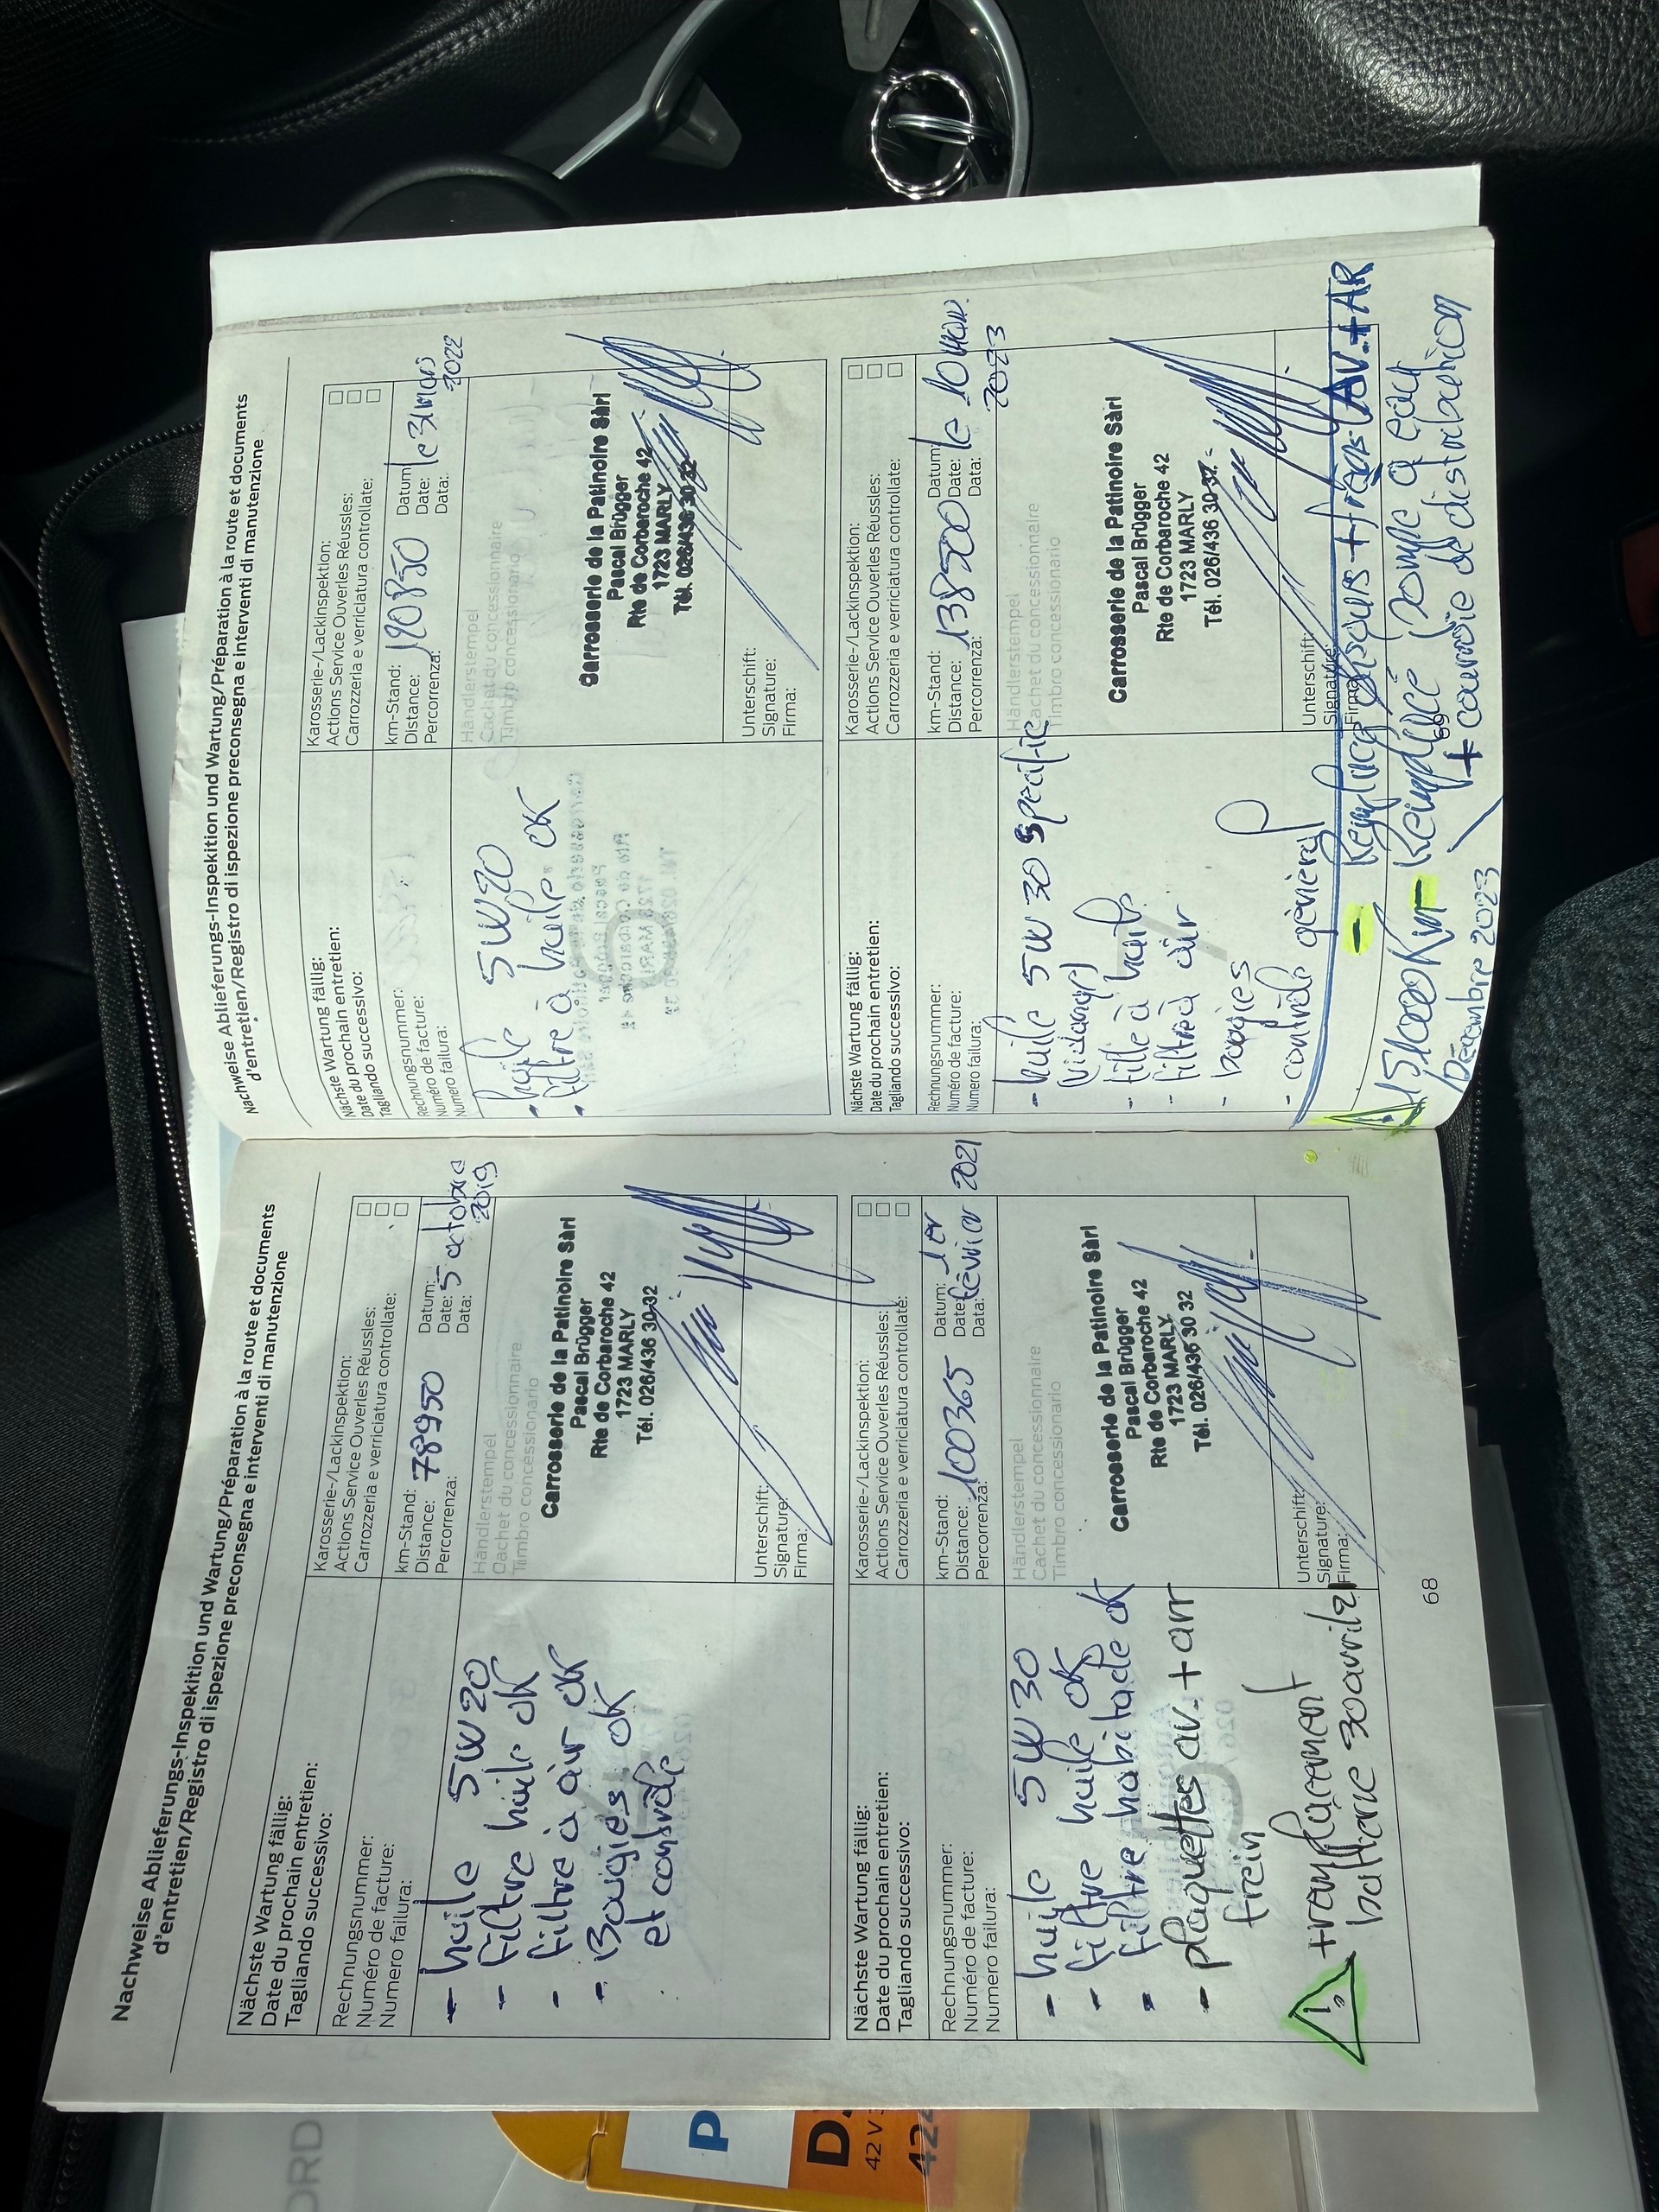 Nachweise Ablieferungs-Inspektion und Wartung/Préparation à la route et documents
d'entretien/Registro di ispezione preconsegna e interventi di manutenzione
Nächste Wartung fällig:
Date du prochain entretien:
Tagliando successivo:
Karosserie-/Lackinspektion:
Actions Service Ouverles Réussles:
Carrozzeria e verriciatura controllate:
Rechnungsnummer:
Numéro de facture:
Numero failura:
km-Stand:
Distance: 78950
Percorrenza:
Datum:
Date: 5 octobre
Data: 2019
- huile 5W20
- filtre huile ok
- filtre à air ok
- Bougies ok
et contrôle
Händlerstempel
Cachet du concessionnaire
Timbro concessionario
Carrosserie de la Patinoire Sàrl
Pascal Brügger
Rte de Corbaroche 42
1723 MARLY
Tél. 026/436 30 32
Unterschift:
Signature:
Firma:
Nächste Wartung fällig:
Date du prochain entretien:
Tagliando successivo:
Karosserie-/Lackinspektion:
Actions Service Ouverles Réussles:
Carrozzeria e verriciatura controllate:
Rechnungsnummer:
Numéro de facture:
Numero failura:
km-Stand:
Distance: 100365
Percorrenza:
Datum: 1er
Date: février 2021
Data:
- huile 5W30
- filtre huile ok
- filtre habitacle ok
- plaquettes av. + arr
frein
Händlerstempel
Cachet du concessionnaire
Timbro concessionario
Carrosserie de la Patinoire Sàrl
Pascal Brügger
Rte de Corbaroche 42
1723 MARLY
Tél. 026/436 30 32
Unterschift:
Signature:
Firma:
! remplacement
batterie 30 avril 21
68
Nachweise Ablieferungs-Inspektion und Wartung/Préparation à la route et documents
d'entretien/Registro di ispezione preconsegna e interventi di manutenzione
Nächste Wartung fällig:
Date du prochain entretien:
Tagliando successivo:
Karosserie-/Lackinspektion:
Actions Service Ouverles Réussles:
Carrozzeria e verriciatura controllate:
Rechnungsnummer:
Numéro de facture:
Numero failura:
km-Stand:
Distance: 120850
Percorrenza:
Datum:
Date: le 3 mars
Data: 2022
- huile 5W20
- filtre à huile ok
Händlerstempel
Cachet du concessionnaire
Timbro concessionario
Carrosserie de la Patinoire Sàrl
Pascal Brügger
Rte de Corbaroche 42
1723 MARLY
Tél. 026/436 30 32
Unterschift:
Signature:
Firma:
Nächste Wartung fällig:
Date du prochain entretien:
Tagliando successivo:
Karosserie-/Lackinspektion:
Actions Service Ouverles Réussles:
Carrozzeria e verriciatura controllate:
Rechnungsnummer:
Numéro de facture:
Numero failura:
km-Stand:
Distance: 138500
Percorrenza:
Datum:
Date: le 10
Data: 2023
- huile 5W30 specific
(vidange)
- filtre à huile
- filtre à air
- bougies
- contrôle général
Händlerstempel
Cachet du concessionnaire
Timbro concessionario
Carrosserie de la Patinoire Sàrl
Pascal Brügger
Rte de Corbaroche 42
1723 MARLY
Tél. 026/436 30 32
Unterschift:
Signature:
Firma:
- Remplacé disques + freins AV. + AR
151000 Km - Remplacé pompe à eau
+ courroie de distribution
Décembre 2023
69
ORD
P
D
42 V